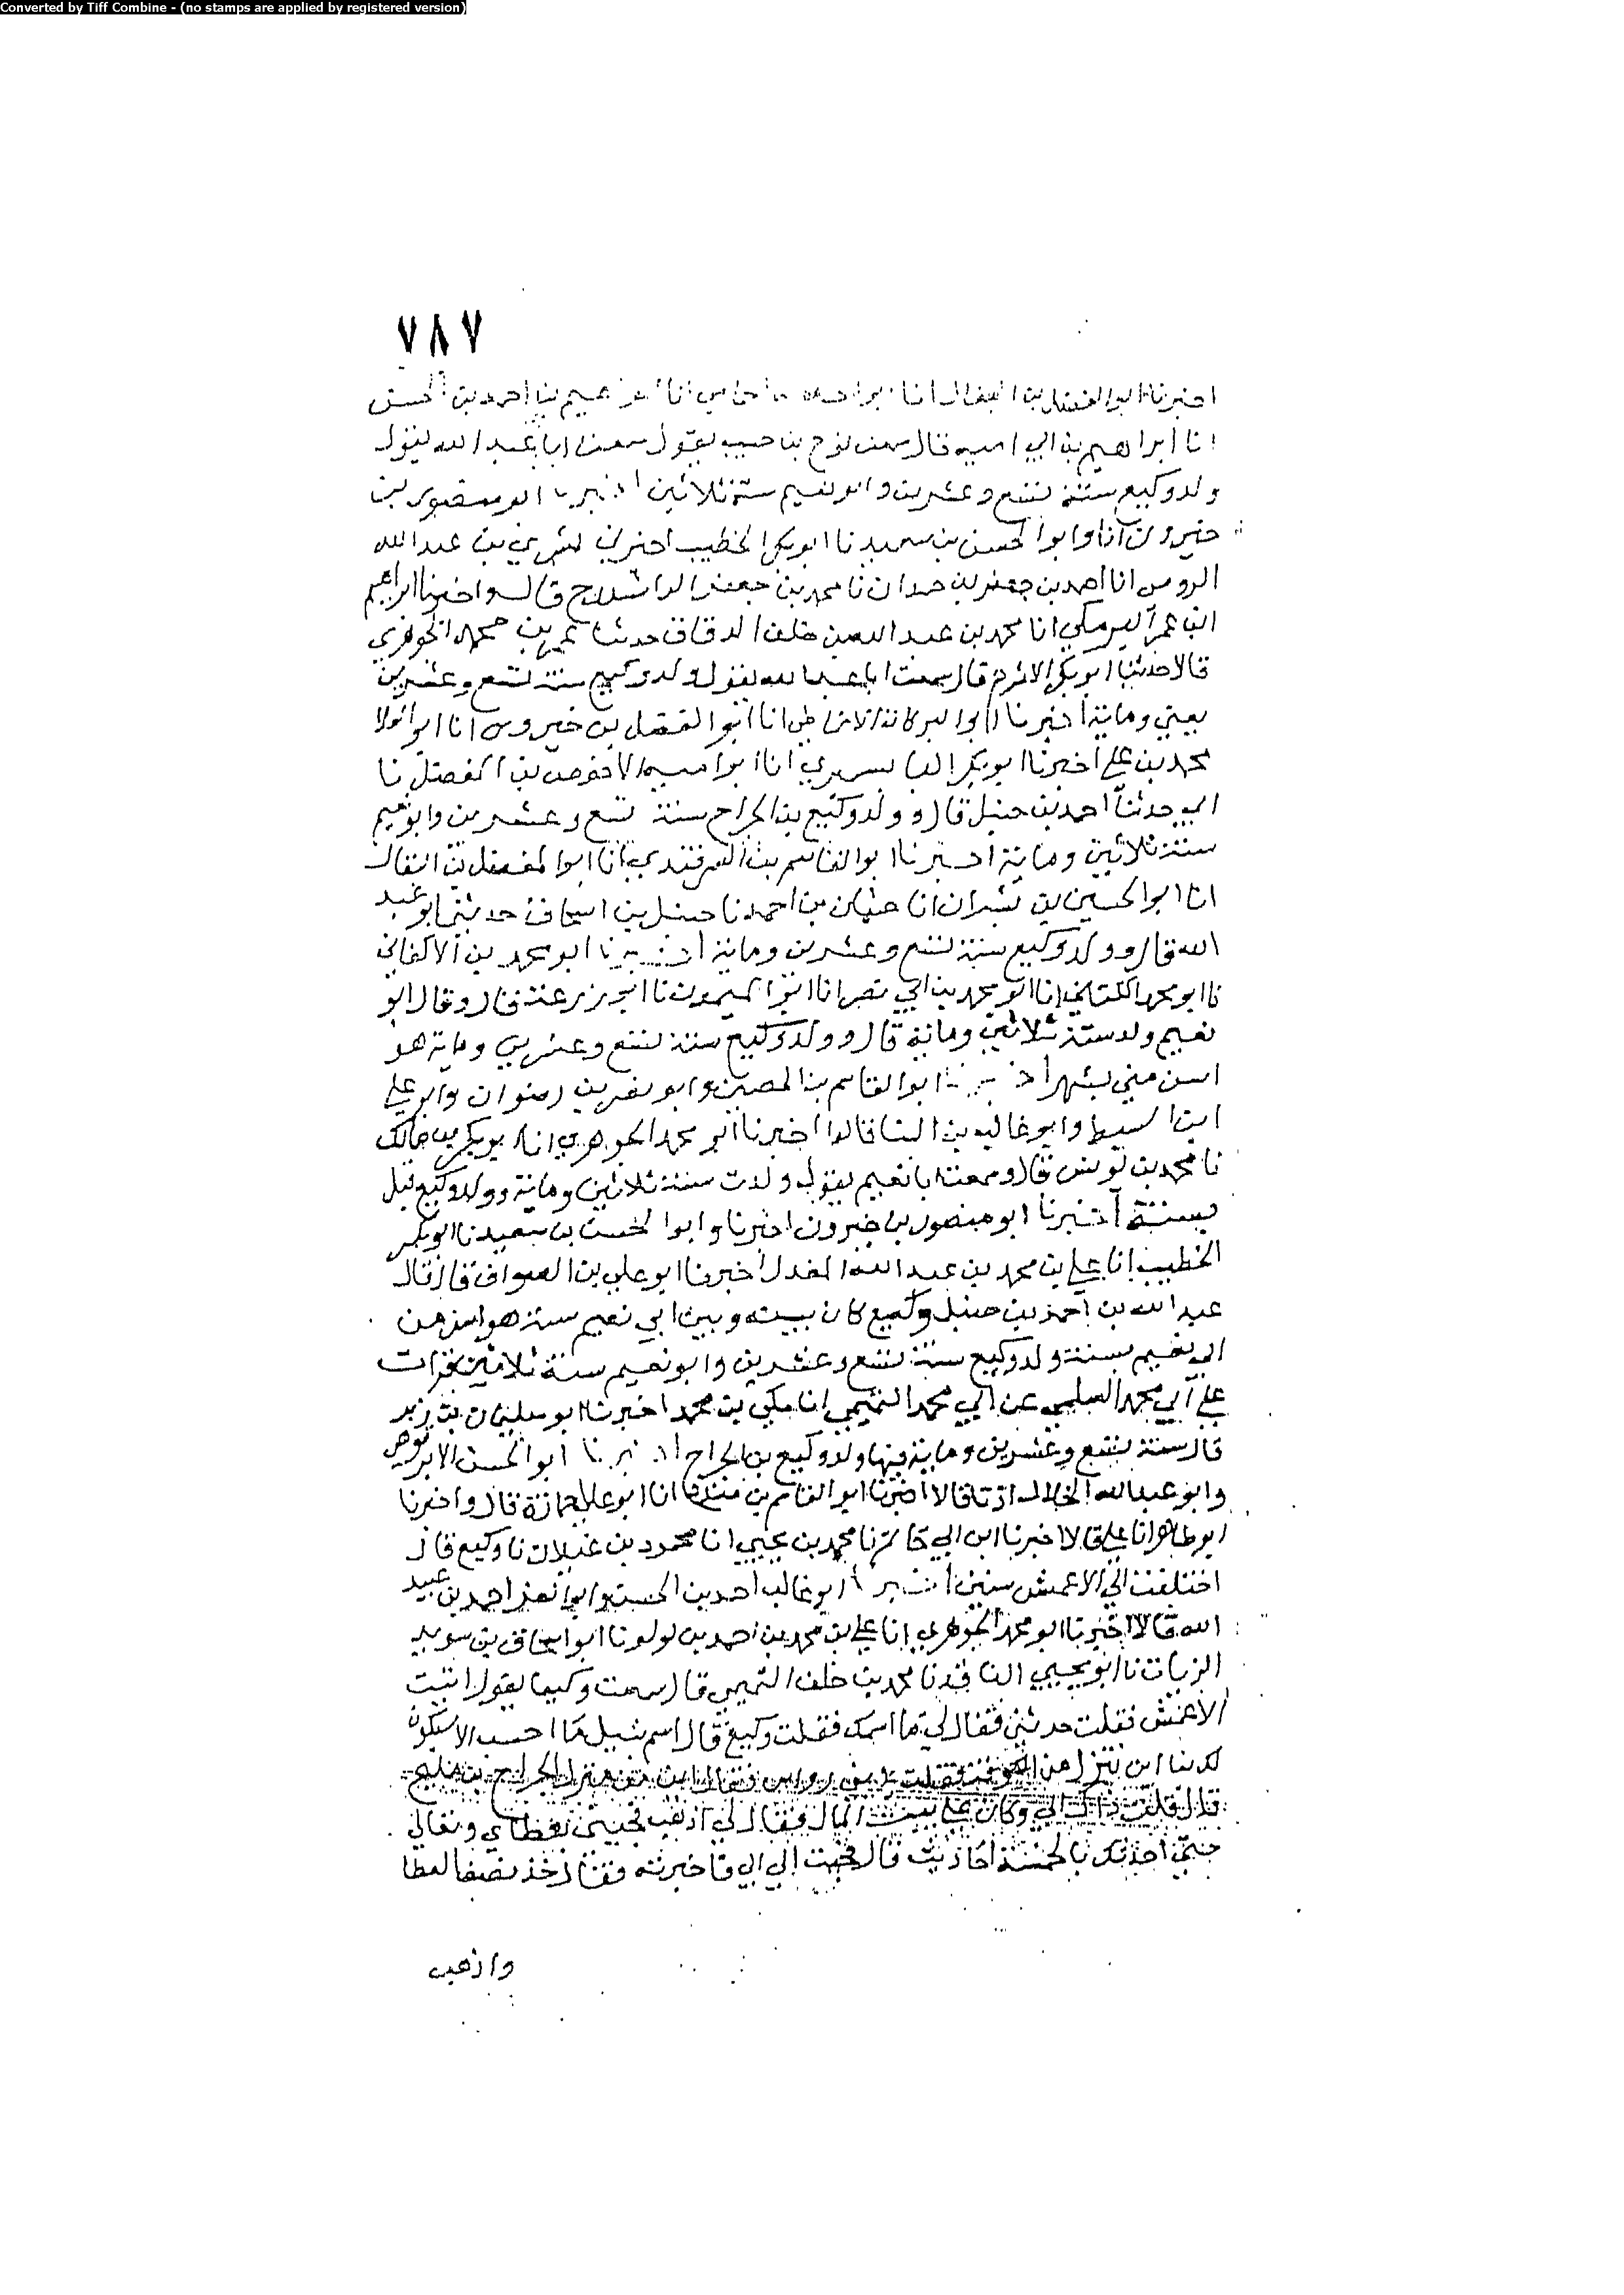 Converted by Tiff Combine - (no stamps are applied by registered version)
٧٨٧
اخبرنا ابو الفضل بن البقال انا ابو انا ابراهيم بن احمد بن الحسن
انا ابراهيم بن ابي اميه قال سمعت نوح بن حبيب يقول سمعت ابا عبد الله يقول
ولد وكيع سنة تسع وعشرين وابو نعيم سنة ثلاثين اخبرنا ابو منصور بن
خيرون انا وابو الحسن بن سعيد نا ابو بكر الخطيب اخبرني بشري بن عبد الله
الرومي انا احمد بن جعفر بن حمدان نا محمد بن جعفر الراشدي ح قال واخبرنا ابراهيم
ابن عمر البرمكي انا محمد بن عبد الله بن خلف الدقاق حدثنا عمر بن محمد الجوهري
قالا حدثنا ابو بكر الاثرم قال سمعت ابا عبد الله يقول ولد وكيع سنة تسع وعشرين
يعني وماية اخبرنا ابو البركات الانماطي انا ابو الفضل بن خيرون انا ابو العلا
محمد بن علي اخبرنا ابو بكر البابسيري انا ابو اميه الاحوص بن المفضل نا
ابي حدثنا احمد بن حنبل قال وولد وكيع بن الجراح سنة تسع وعشرين وابو نعيم
سنة ثلاثين وماية اخبرنا ابو القاسم بن السمرقندي انا ابو الفضل بن البقال
انا ابو الحسين بن بشران انا عثمان بن احمد نا حنبل بن اسحاق حدثني ابو عبد
الله قال وولد وكيع سنة تسع وعشرين وماية اخبرنا ابو محمد بن الاكفاني
نا ابو محمد الكتاني انا ابو محمد بن ابي نصر انا ابو الميمون نا ابو زرعة قال وقال ابو
نعيم ولد سنة ثلاثين وماية قال وولد وكيع سنة تسع وعشرين وماية هو
اسن مني بشهر اخبرنا ابو القاسم بن الحصين وابو نصر بن رضوان وابو علي
ابن السبط وابو غالب بن البنا قالوا اخبرنا ابو محمد الجوهري انا ابو بكر بن مالك
نا محمد بن يونس قال وسمعت ابا نعيم يقول ولدت سنة ثلاثين وماية وولد وكيع قبل
بسنة اخبرنا ابو منصور بن خيرون اخبرنا وابو الحسن بن سعيد نا ابو بكر
الخطيب انا علي بن محمد بن عبد الله المعدل اخبرنا ابو علي بن الصواف قال قال
عبد الله بن احمد بن حنبل وكيع كان بينه وبين ابي نعيم سنة هو اسن من
ابي نعيم بسنة ولد وكيع سنة تسع وعشرين وابو نعيم سنة ثلاثين قرات
علي ابي محمد السلمي عن ابي محمد التميمي انا مكي بن محمد اخبرنا ابو سليمان بن زبر
قال سنة تسع وعشرين وماية فيها ولد وكيع بن الجراح اخبرنا ابو الحسن الابرقوهي
وابو عبد الله الخلال اذنا قالا اخبرنا ابو القاسم بن منده انا ابو علي اجازة قال واخبرنا
ابو طاهر انا علي قالا اخبرنا ابن ابي حاتم نا محمد بن يحيي انا محمود بن غيلان نا وكيع قال
اختلفت الي الاعمش سنين اخبرنا ابو غالب احمد بن الحسن وابو العز احمد بن عبيد
الله قالا اخبرنا ابو محمد الجوهري انا علي بن محمد بن احمد بن لولو نا ابو اسحاق بن سويد
الزيات نا ابو يحيي الناقد نا محمد بن خلف التميمي قال سمعت وكيعا يقول اتيت
الاعمش فقلت حدثني فقال لي ما اسمك فقلت وكيع قال اسم نبيل ما احسب الا سيكون
لك نبا اين تنزل من الكوفة فقلت في بني رواس فقال اين من منزل الجراح بن مليح
قال قلت ذاك ابي وكان علي بيت المال فقال لي اذهب فجيني بعطاي وتعالي
حتي احدثك بالخمسة احاديث قال فجيت الي ابي فاخبرته فقال خذ نصف العطا
واذهب